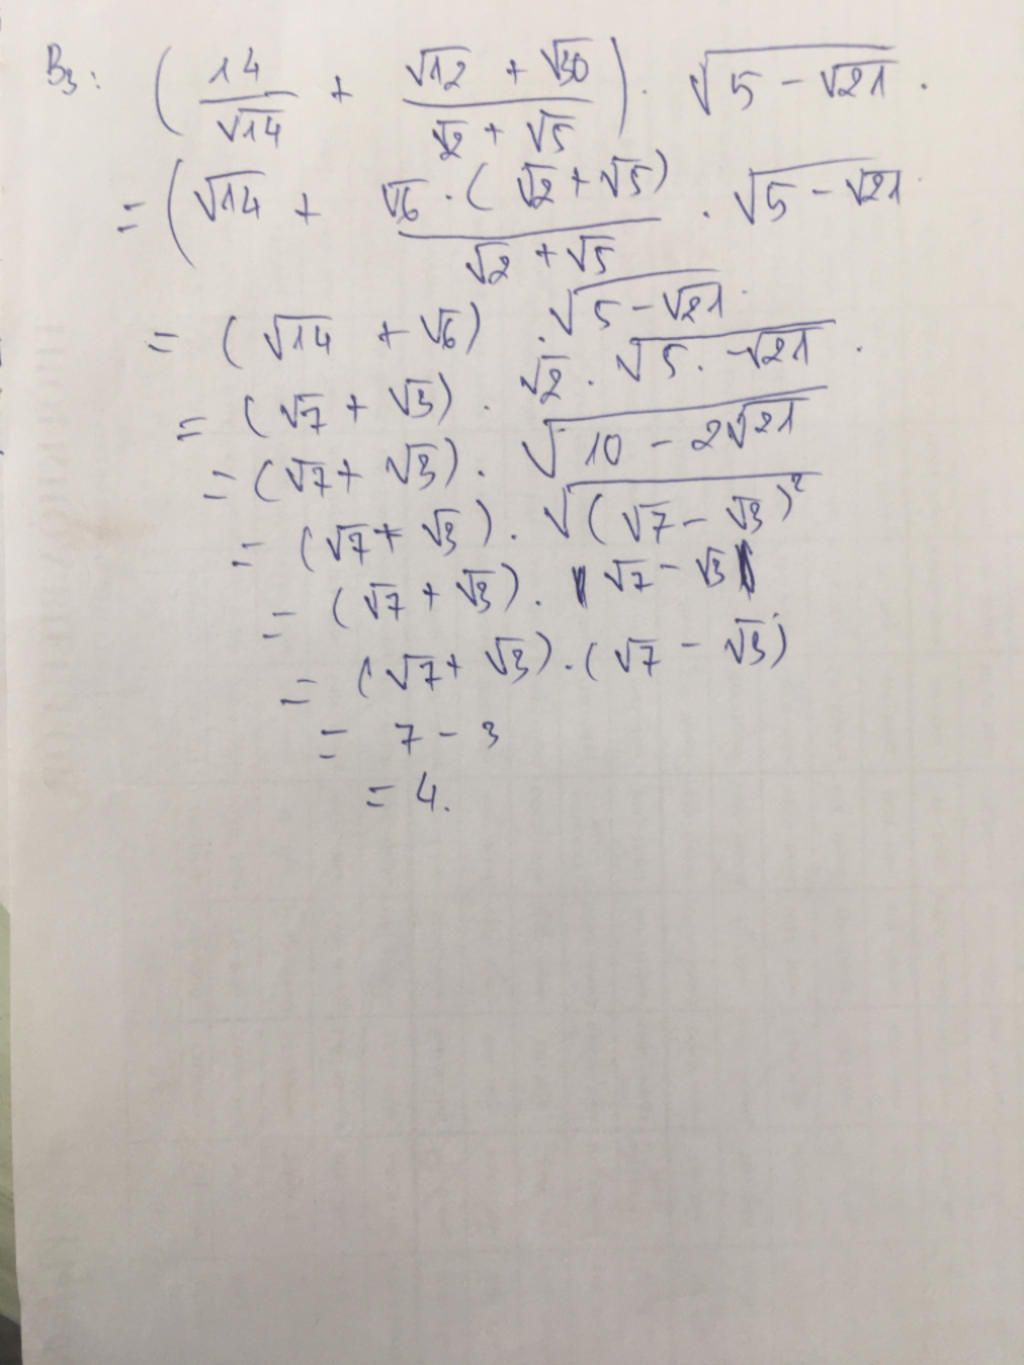 B3: ( 14/√14 + (√12 + √30)/(√2 + √5) ) . √(5 - √21) .
= ( √14 + √6 . (√2 + √5)/(√2 + √5) . √(5 - √21)
= (√14 + √6) . √(5 - √21) .
= (√7 + √3) . √2 . √(5 . -√21) .
= (√7 + √3) . √(10 - 2√21)
= (√7 + √3) . √((√7 - √3)²)
= (√7 + √3) . |√7 - √3|
= (√7 + √3) . (√7 - √3)
= 7 - 3
= 4.